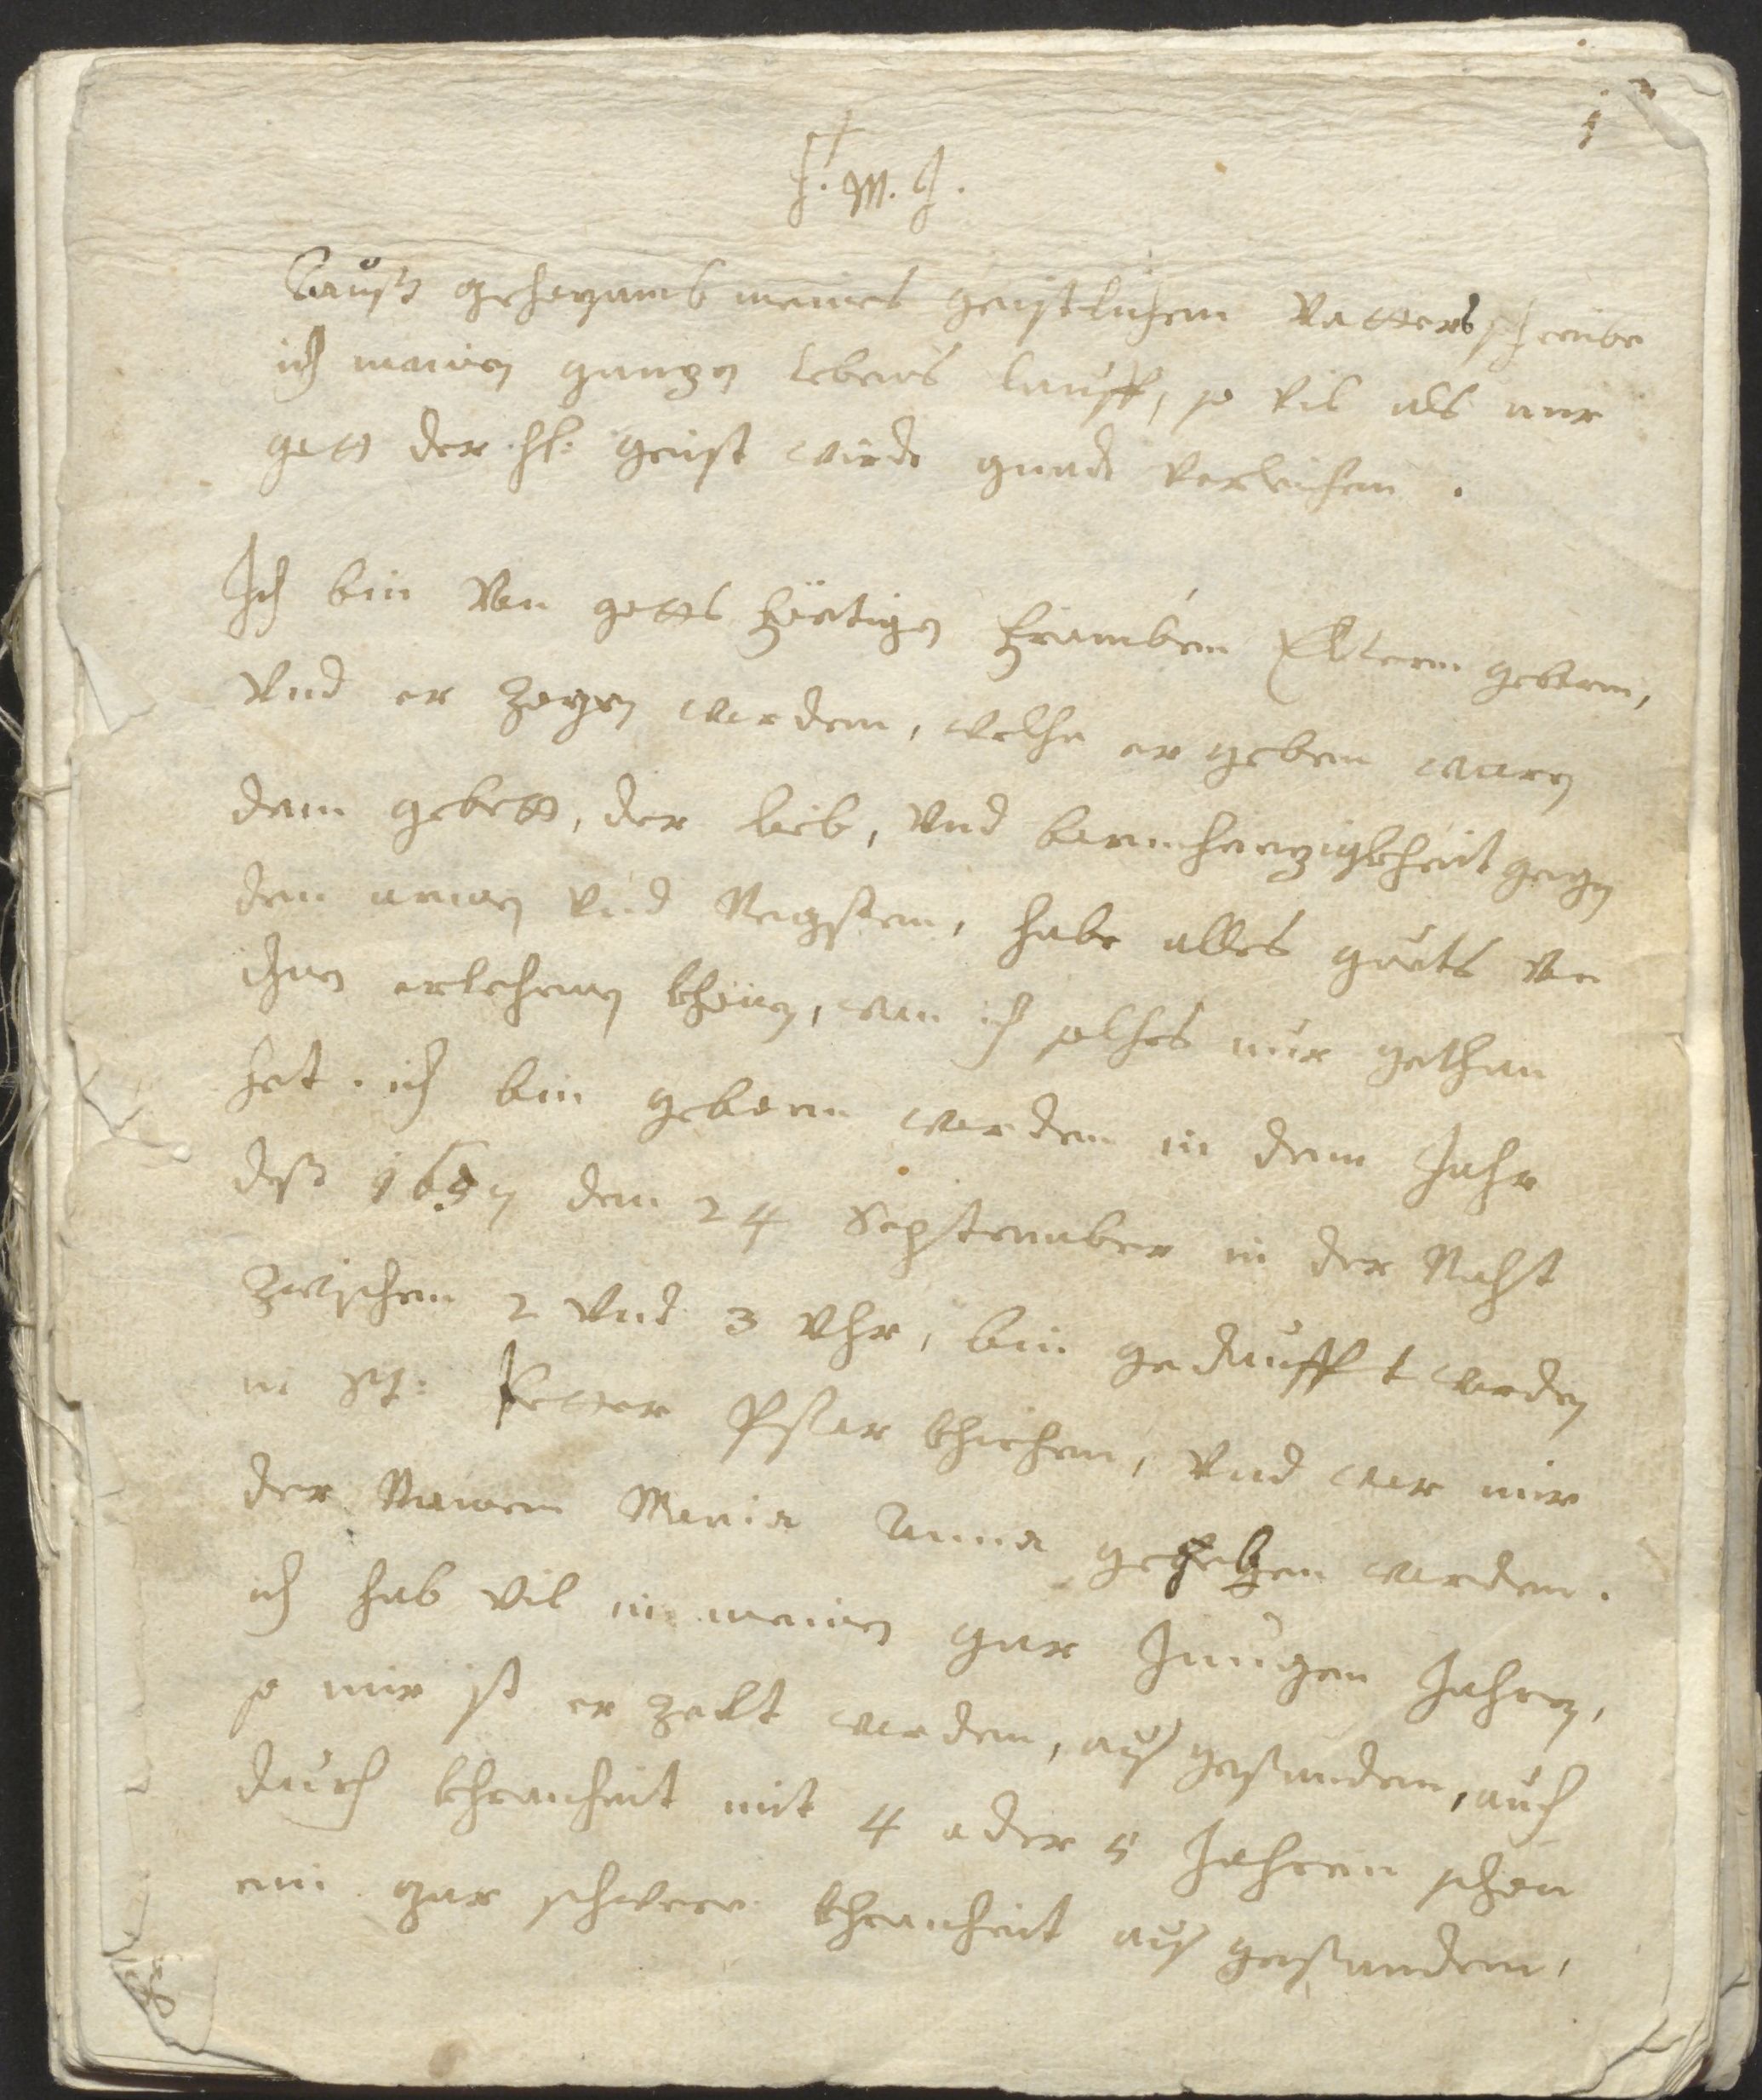 1
J. M. J.
Vauß gehorsamb meines geistlichem Vatters schreibe
ich meinen ganzen lebens lauff, so vil als mir
gott der hl: geist wirdt gnadt verleichen.
Ich bin Von gotts förtigen frumben Eltern gebern,
Vnd er zogen worden, welche er geben waren
dem gebett, der lieb, Vnd barmherzigkheit gegen
den armen Vnd Negsten, habe alles guets von
ihnen erlehrnen khönen, wan ich solches nur gethan
het. ich bin geboren worden in dem Jahr
deß 1657 den 24 September in der Nacht
zwischen 2 Vnd 3 Vhr, bin gedaufft worden
in St: Petter Pfar khirchen, Vnd wer mir
der Namen Maria Anna gegeben worden.
ich hab vil in meinen gar Jungen Jahren,
so mir ist er zelt worden, aus gestanden, auch
durch khranheit mit 4 oder 5 Jahren schon
ein gar schwere khranheit aus gestanden,